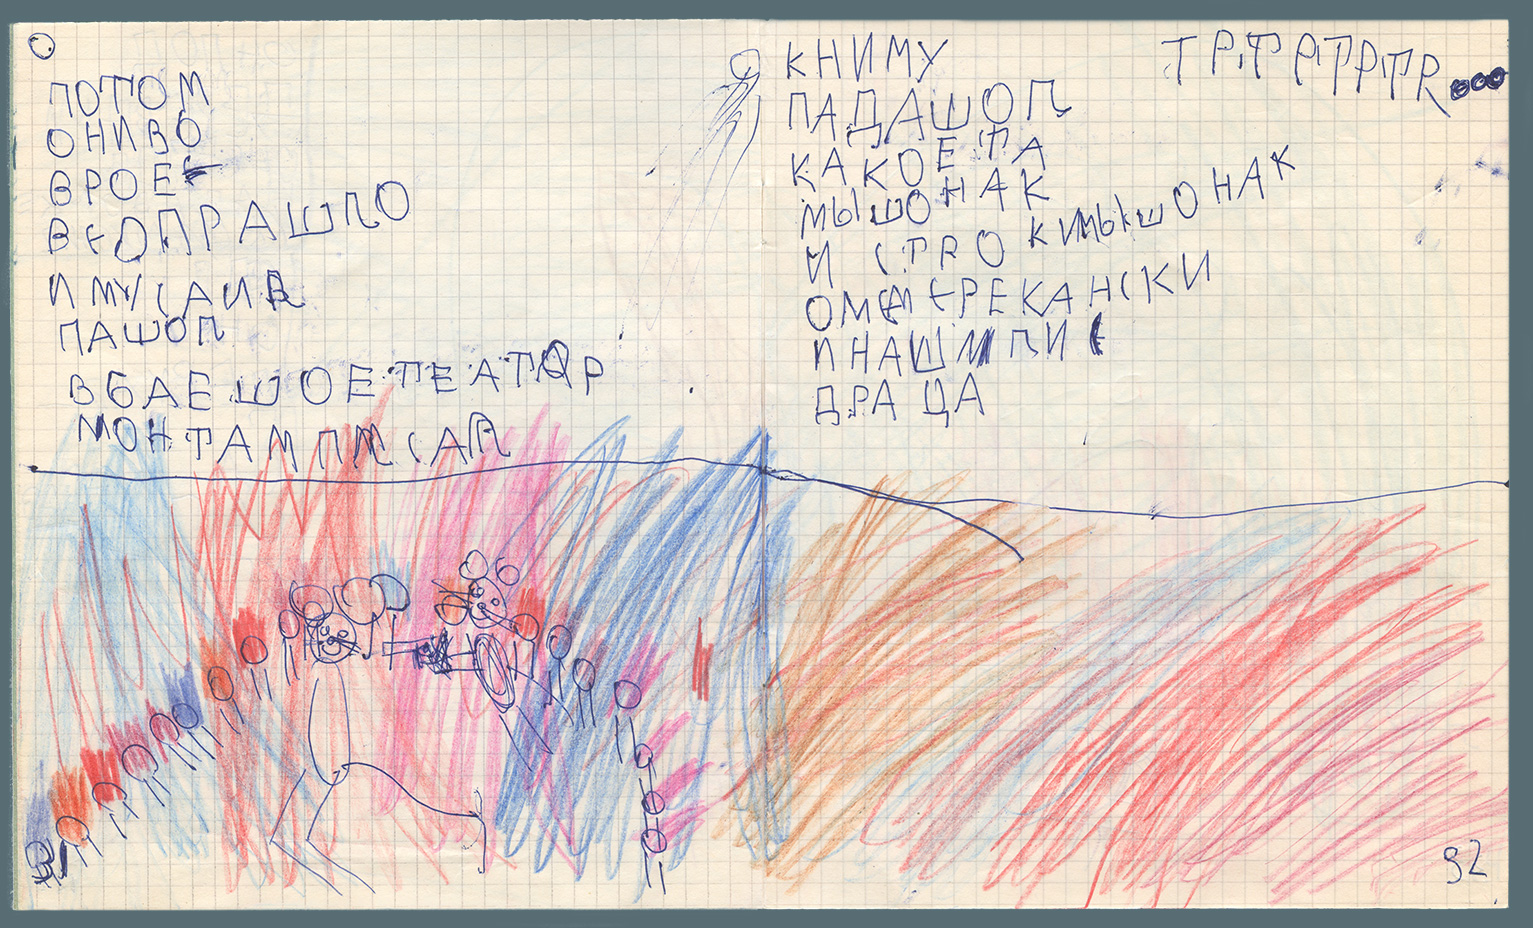 ПОТОМ
ОНИВО
ВРОЕ
ВЕОПРАШЛО
И МУСАИВ
ПАШОЛ
ВБАЕШОЕ ТЕАТОР
МОНТАМПИСАЛ
91
КНИМУ
ПАДАШОЛ
КАКОЕТА
МЫШОНАК
И СТРО КИМЫШОНАК
ОМЕРЕКАНСКИ
ИНАШИЛИ
ДРАЦА
ТРТРТРТR...
92